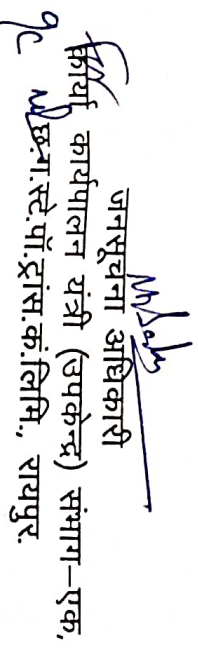 जनसूचना अधिकारी
कार्या कार्यपालन यंत्री (उपकेन्द्र) संभाग–एक,
छ.ग.स्टे.पॉ.ट्रांस.कं.लिमि., रायपुर.